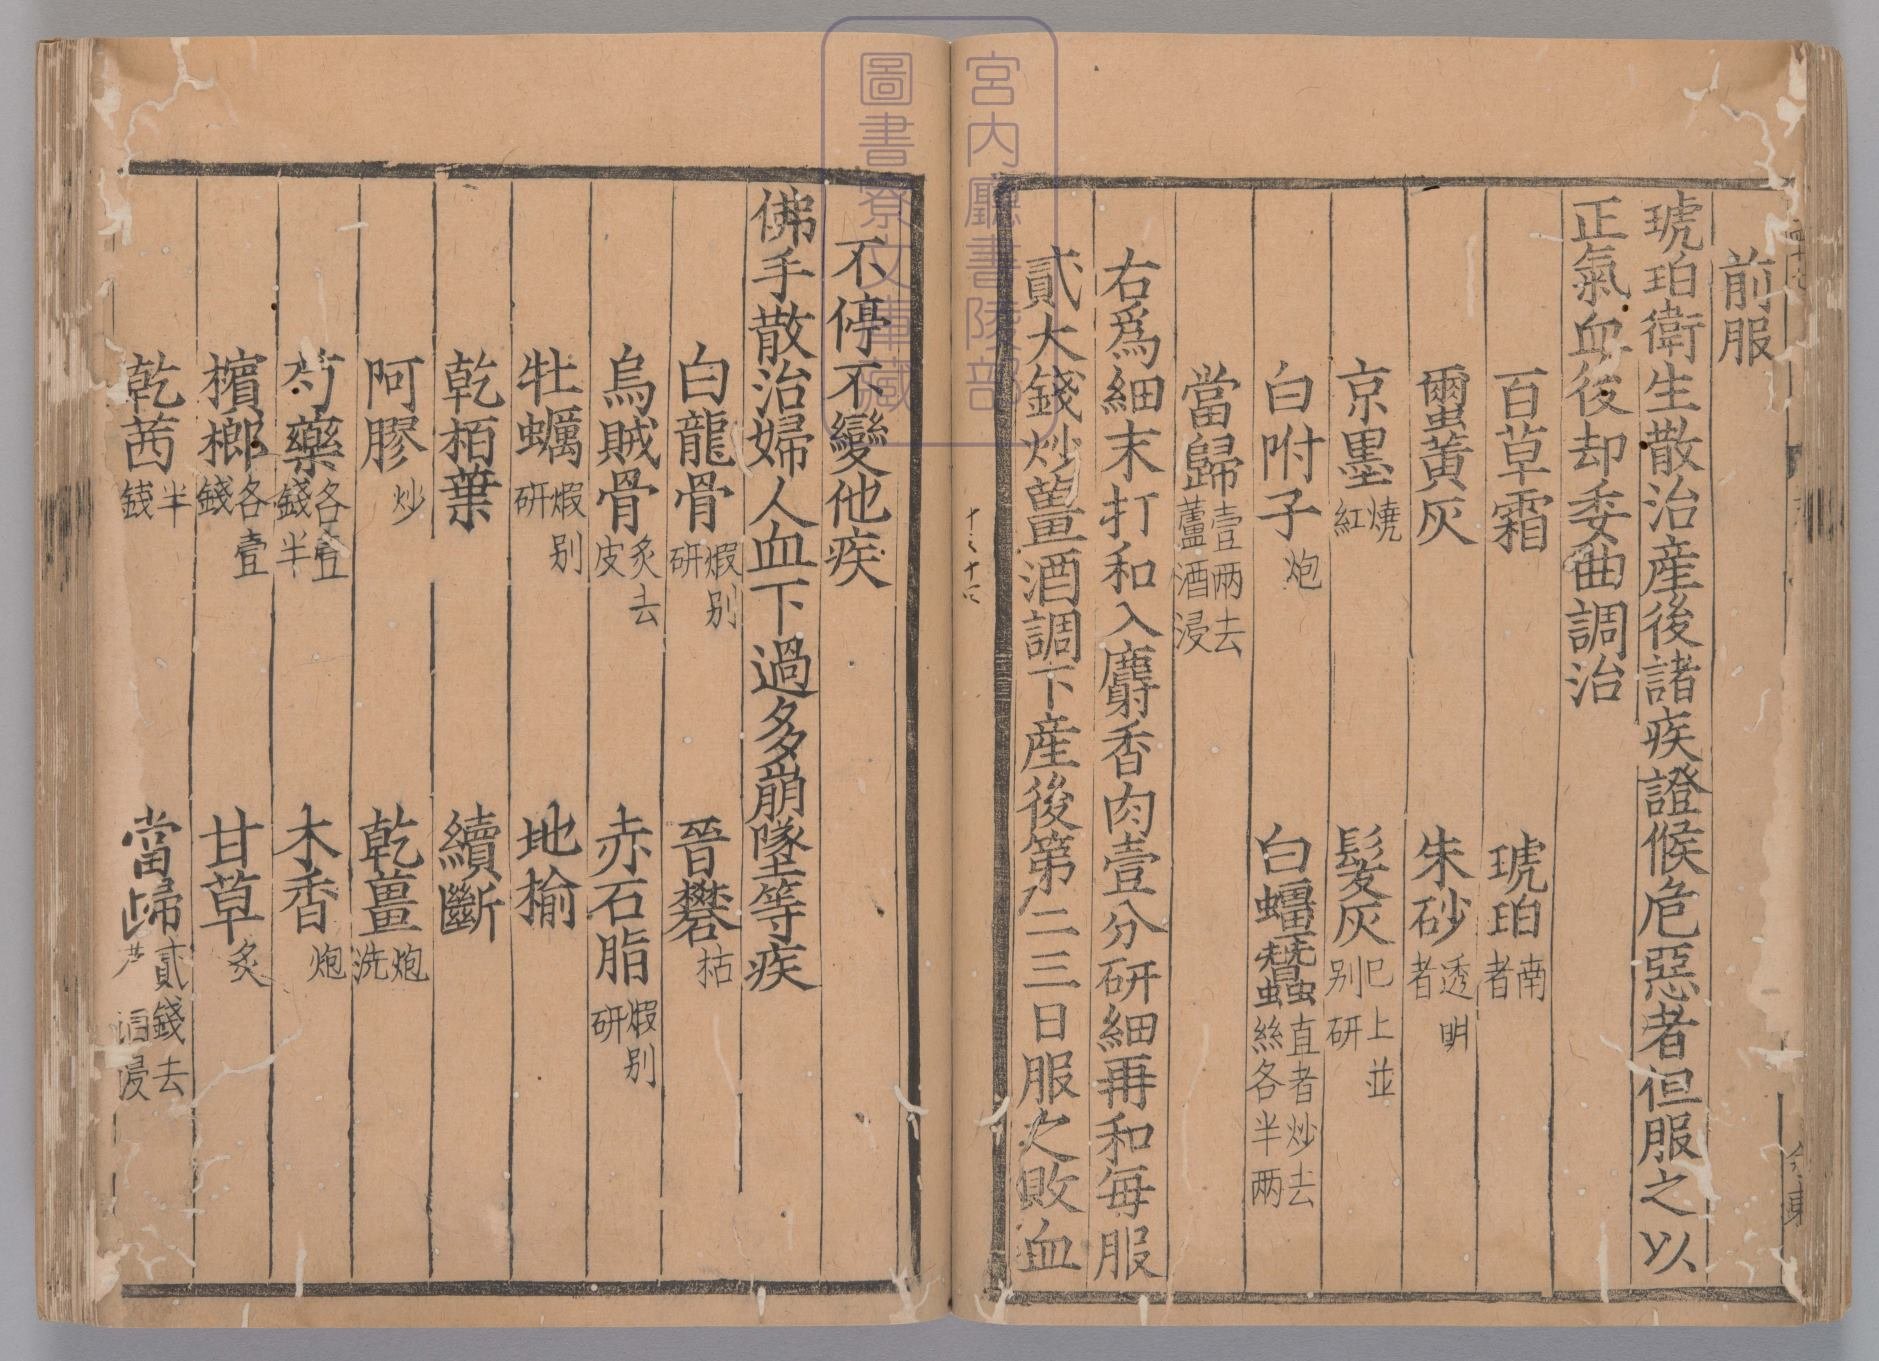 前服
琥珀衛生散治産後諸疾證候危惡者但服之以
正氣血後却委曲調治
百草霜 琥珀南者
蠒黄灰 朱砂透明者
京墨燒紅 髮灰巳上並别研
白附子炮 白殭蠶直者炒去絲各半两
當歸壹两去蘆酒浸
右爲細末打和入麝香肉壹分研細再和每服
貳大錢炒薑酒調下産後第二三日服之敗血
不停不變他疾
佛手散治婦人血下過多崩墜等疾
白龍骨煆别研 晉礬枯
烏賊骨炙去皮 赤石脂煆别研
牡蠣煆别研 地榆
乾栢葉 續斷
阿膠炒 乾薑炮洗
芍藥各壹錢半 木香炮
檳榔各壹錢 甘草炙
乾茜半錢 當歸貳錢去芦酒浸
宮内廳書陵部
圖書寮文庫藏